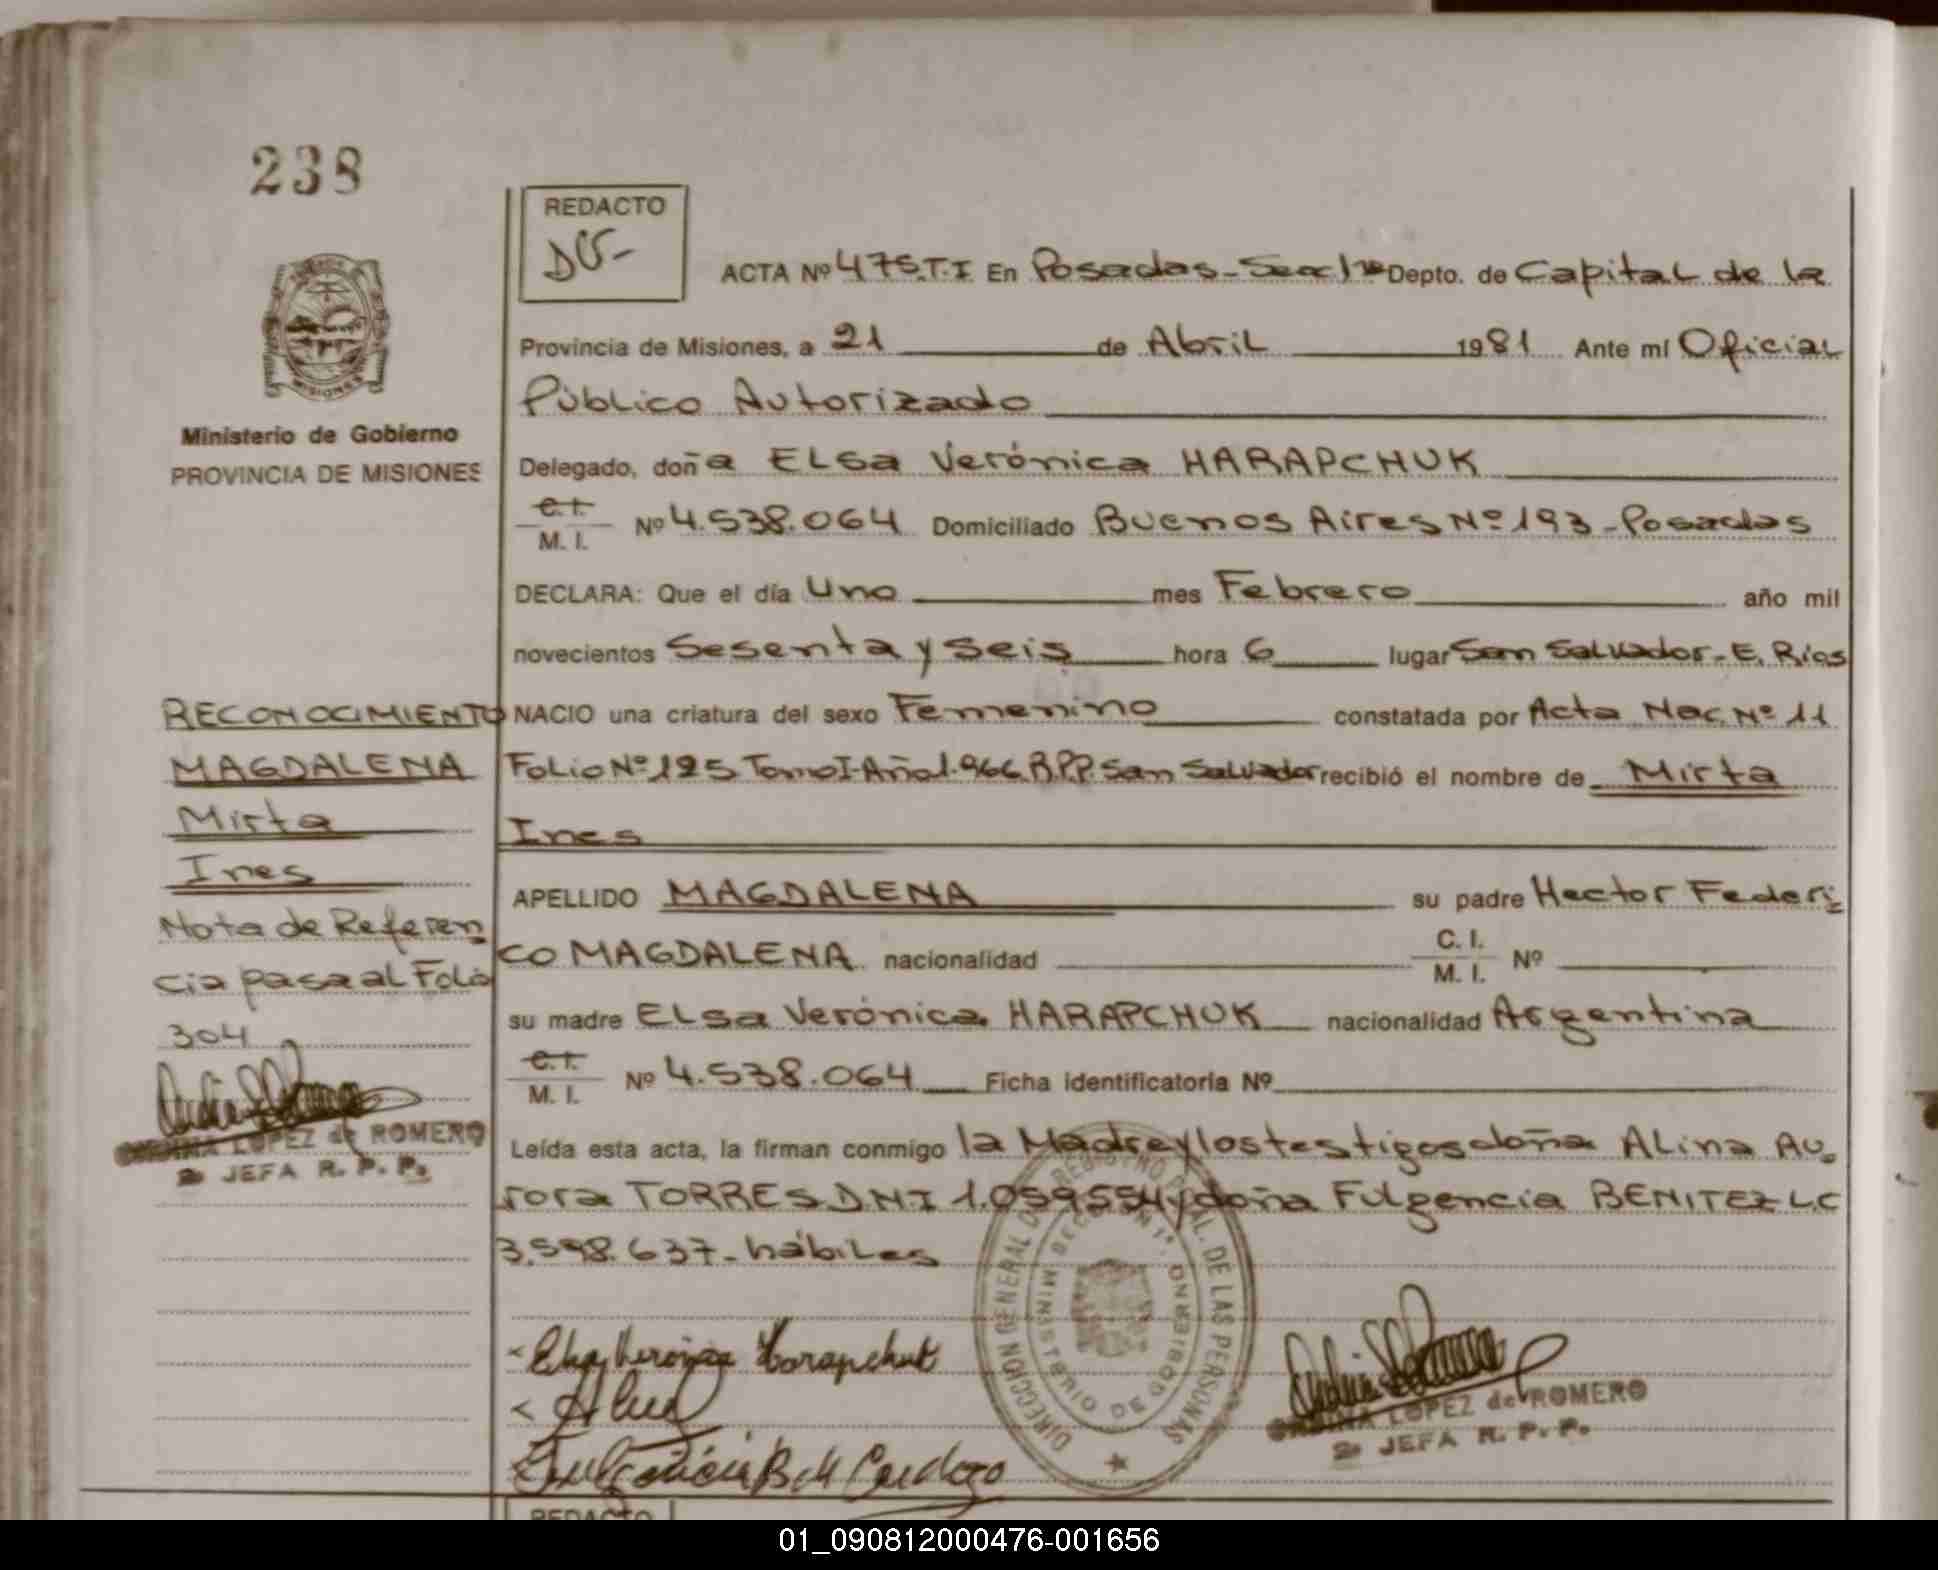 238
REDACTO
ACTA Nº 475.T.I En Posadas-Secc 1ra Depto. de Capital de la
Provincia de Misiones, a 21 de Abril 1981 Ante mí Oficial
Público Autorizado
Ministerio de Gobierno
PROVINCIA DE MISIONES
Delegado, doña ELsa Verónica HARAPCHUK
C.I.
M. I. Nº 4.538.064 Domiciliado Buenos Aires Nº 193-Posadas
DECLARA: Que el día Uno mes Febrero año mil
novecientos Sesenta y seis hora 6 lugar San Salvador-E. Ríos
RECONOCIMIENTO
MAGDALENA
Mirta
Ines
Nota de Referen
cia pasa al Folio
304
LOPEZ de ROMERO
JEFA R. P. P.
NACIO una criatura del sexo Femenino constatada por Acta Nac. Nº 11
Folio Nº 125 Tomo I-Año 1.966 R.P.P. San Salvador recibió el nombre de Mirta
Ines
APELLIDO MAGDALENA su padre Hector Federi
co MAGDALENA nacionalidad C. I.
M. I. Nº
su madre ELsa Verónica HARAPCHUK nacionalidad Argentina
C.I.
M. I. Nº 4.538.064 Ficha identificatoria Nº
Leída esta acta, la firman conmigo la Madre y los testigos doña ALina Au
rora TORRES D.N.I 1.059554 y doña Fulgencia BENITEZ L.C
3.598.637-hábiles
Elsa Veronica Harapchuk
DIRECCION GENERAL DE REGISTRO PCIAL. DE LAS PERSONAS
SECCION 1ª.
MINISTERIO DE GOBIERNO
LOPEZ de ROMERO
JEFA R. P. P.
REDACTO
01_090812000476-001656